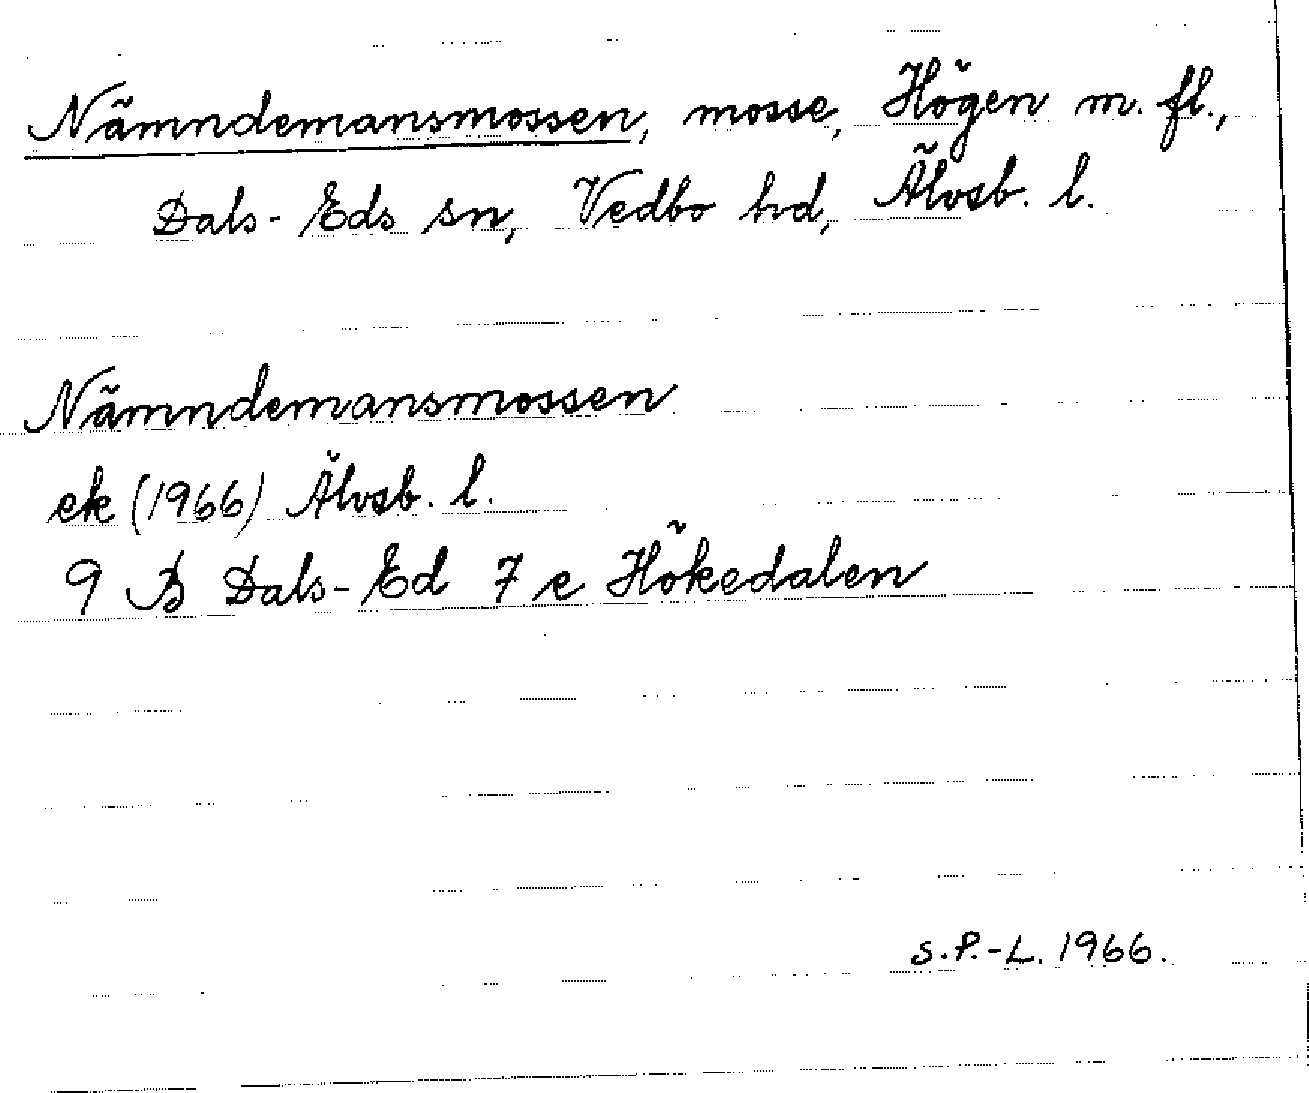 Nämndemansmossen, mosse, Högen m. fl.,
Dals-Eds sn, Vedbo hd, Älvsb. l.
Nämndemansmossen
ek (1966) Älvsb. l.
9 B Dals-Ed 7 e Hökedalen
S.P.-L. 1966.